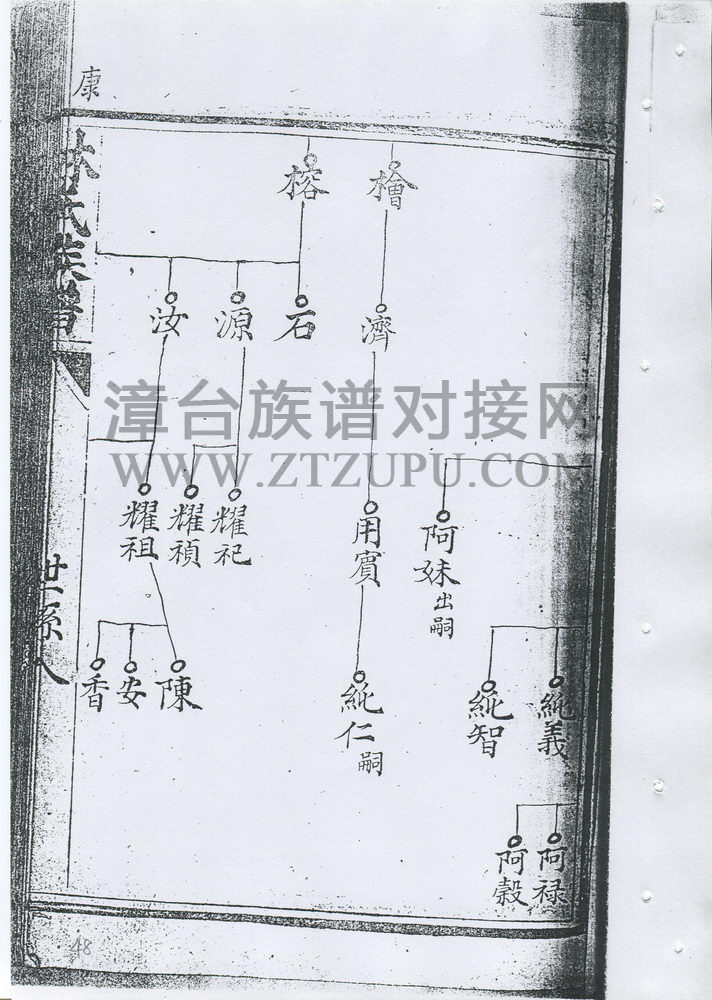 康
林氏族譜
世系八
檜
榕
濟
石
源
汝
用賓
阿妹出嗣
耀祀
耀禎
耀祖
純義
純智
純仁嗣
陳
安
香
阿禄
阿穀
漳台族谱对接网
WWW.ZTZUPU.COM
48